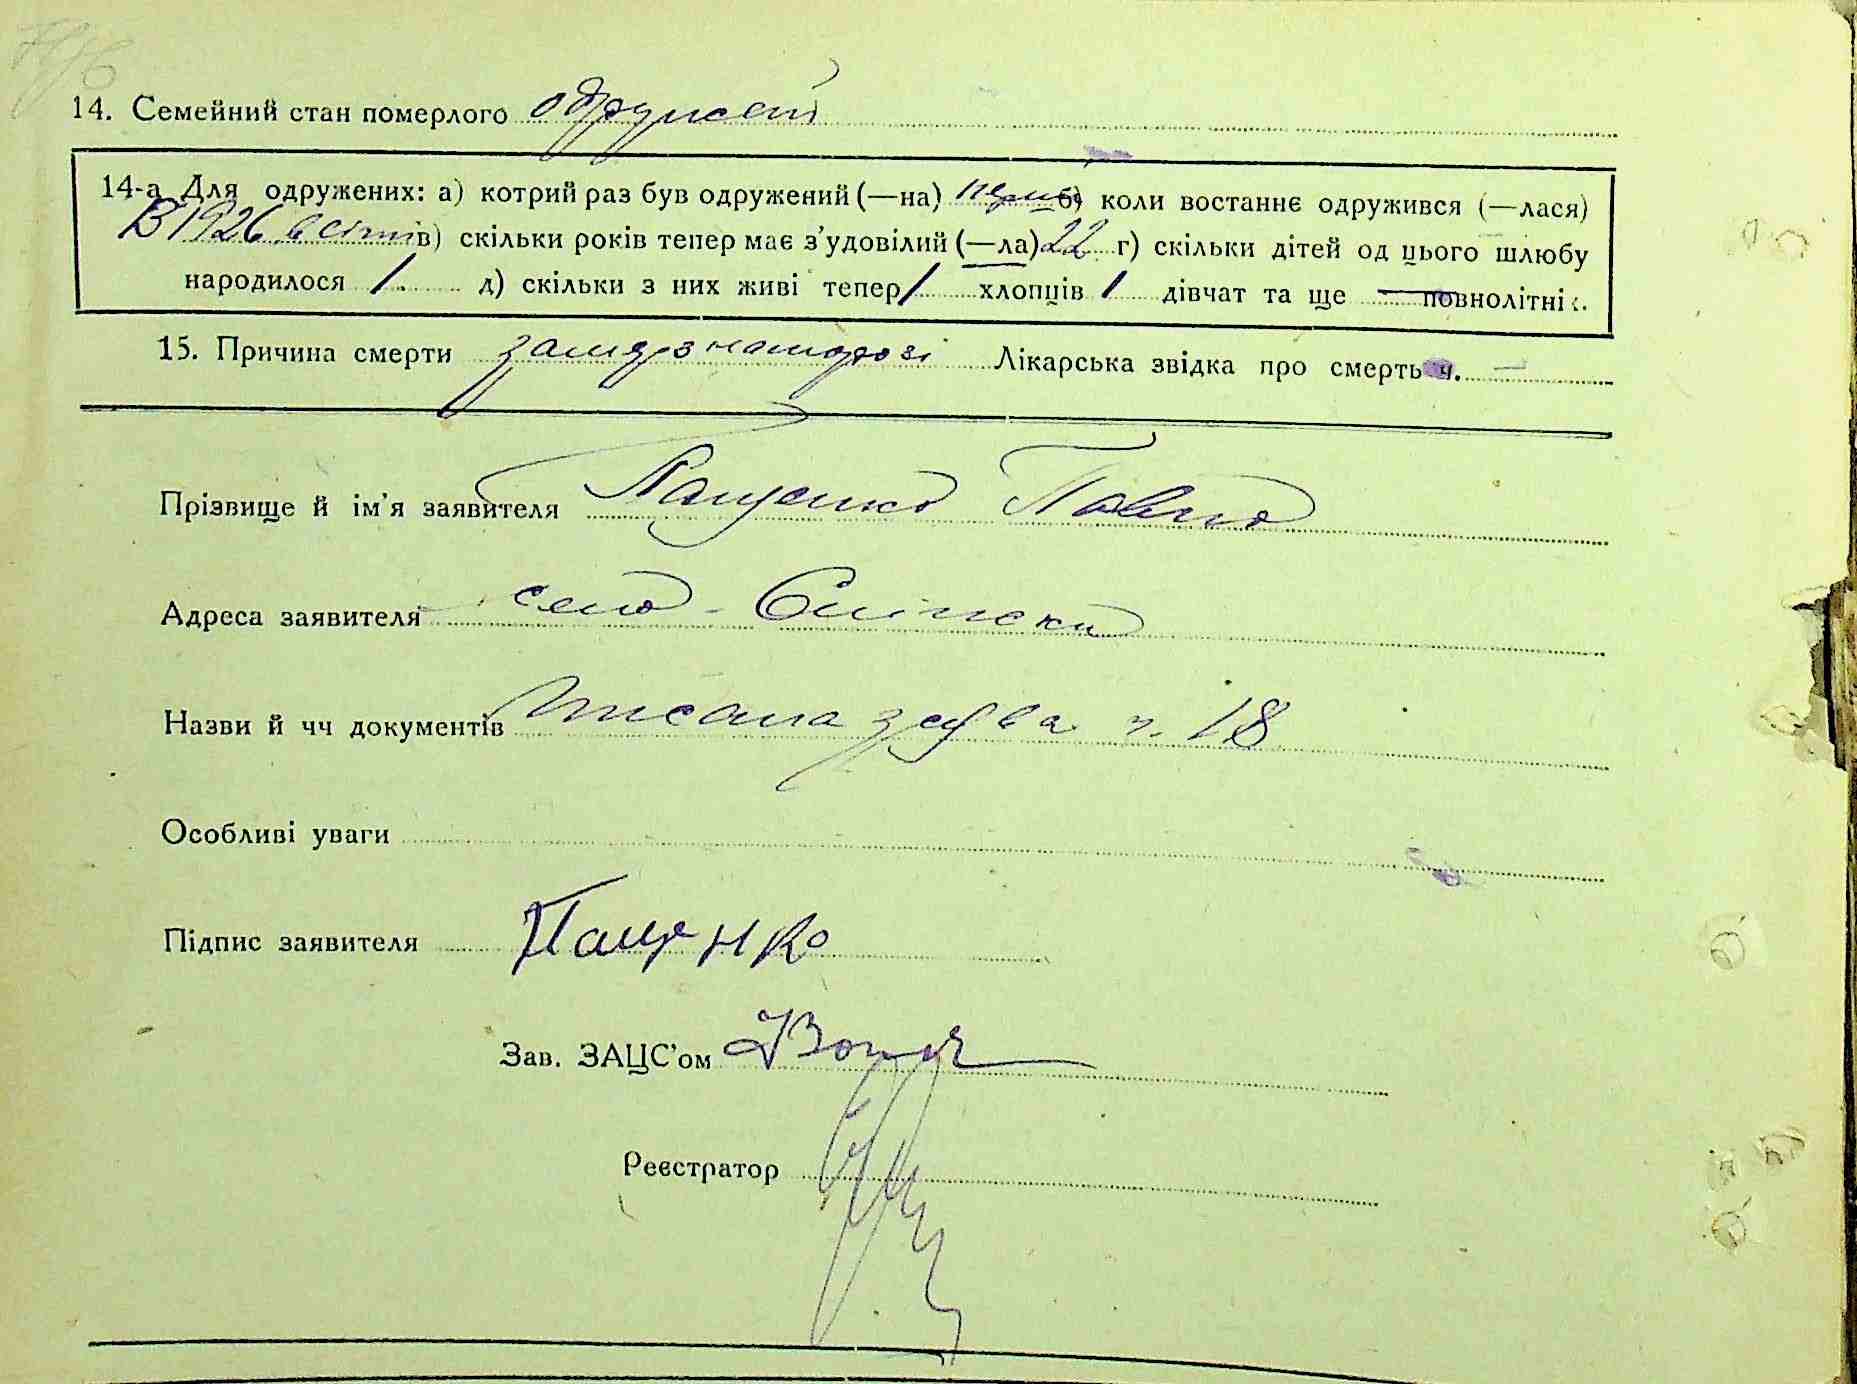 14. Семейний стан померлого одружений
14-а Для одружених: а) котрий раз був одружений (—на) перший б) коли востаннє одружився (—лася)
В 1926 в січні в) скільки років тепер має з'удовілий (—ла) 22 г) скільки дітей од цього шлюбу
народилося 1. д) скільки з них живі тепер 1 хлопців 1 дівчат та ще — повнолітніх.
15. Причина смерти замерз на морозі Лікарська звідка про смерть ч. —
Прізвище й ім'я заявителя Пащенко Павло
Адреса заявителя село
Назви й чч документів писана заява ч. 18
Особливі уваги
Підпис заявителя Пащенко
Зав. ЗАЦС'ом
Реєстратор